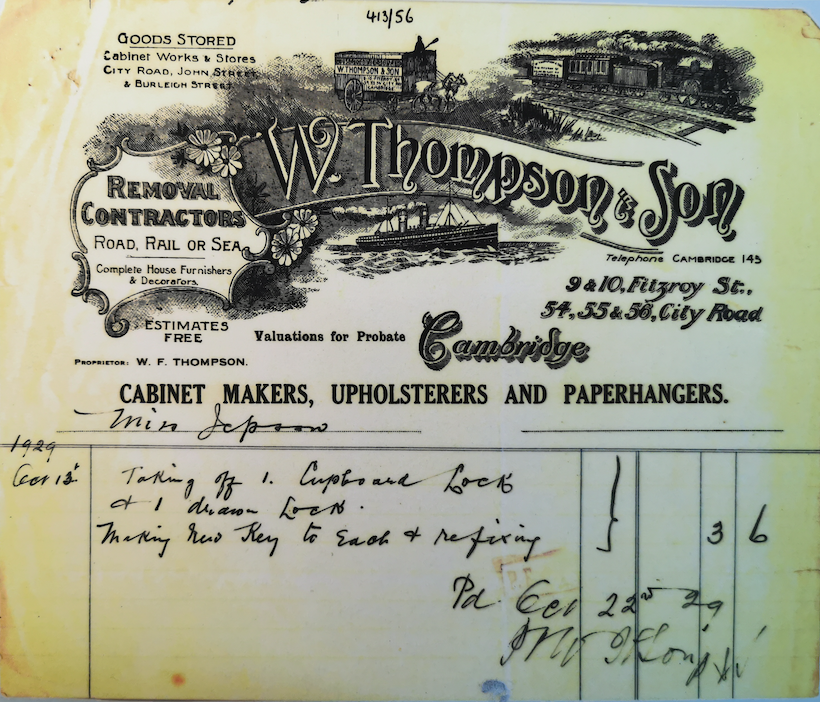 413/56
GOODS STORED
Cabinet Works & Stores
CITY ROAD, JOHN STREET
& BURLEIGH STREET
W. THOMPSON & SON
CAMBRIDGE
W. Thompson & Son
REMOVAL
CONTRACTORS
ROAD, RAIL OR SEA
Complete House Furnishers
& Decorators.
ESTIMATES
FREE
Telephone CAMBRIDGE 145
9 & 10, Fitzroy St.,
54, 55 & 56, City Road
Valuations for Probate
Cambridge
PROPRIETOR: W. F. THOMPSON.
CABINET MAKERS, UPHOLSTERERS AND PAPERHANGERS.
Miss Jepson
1929
Oct 13 Taking off 1. Cupboard Lock
& 1 drawer Lock.
Making New Key to Each & refixing 3 6
Pd. Oct 22 29